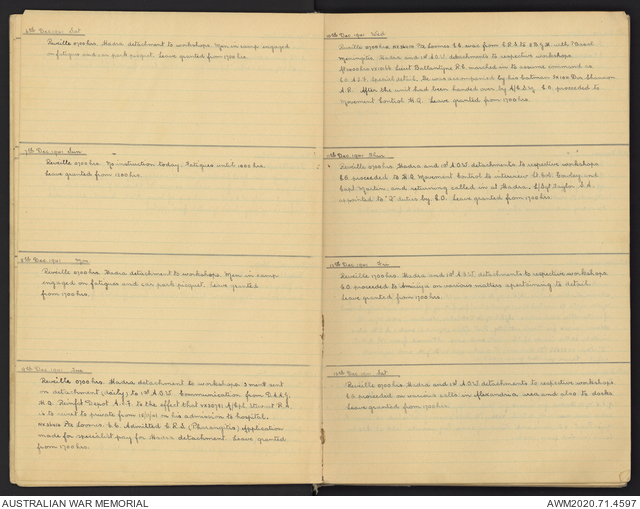 6th Dec. 1941 Sat
Reveille 0700 hrs. Hadra detachment to workshops. Men in camp engaged
on fatigues and car park picquet. Leave granted from 1300 hrs.
7th Dec. 1941 Sun
Reveille 0700 hrs. No instruction today; Fatigues until 1200 hrs.
Leave granted from 1300 hrs.
8th Dec. 1941 Mon
Reveille 0700 hrs. Hadra detachment to workshops. Men in camp
engaged on fatigues and car park picquet. Leave granted
from 1700 hrs.
9th Dec. 1941 Tue
Reveille 0700 hrs. Hadra detachment to workshops. 3 men sent
on detachment (daily) to 1st A.O.W. Communication from D.A.A.G.
H.Q. Reinft Depot A.I.F. to the effect that A/Cpl R.A.
is to revert to private from on his admission to hospital.
Pte Loomes. S.G. Admitted C.R.S. (Pharangitis) Application
made for specialist pay for Hadra detachment. Leave granted
from 1700 hrs.
10th Dec. 1941 Wed
Reveille 0700 hrs. Pte Loomes. S.G. was from C.R.S. to with
Meningitis. Hadra and 1st A.O.W. detachments to respective workshops.
Lieut Ballantyne R.G. marched in to assume command as
O.C. special detach. He was accompanied by his batman Dvr Shannon
A.R. After the unit had been handed over by C.O. proceeded to
Movement Control H.Q. Leave granted from 1700 hrs.
11th Dec. 1941 Thur
Reveille 0700 hrs. Hadra and 1st A.O.W. detachments to respective workshops.
C.O. proceeded to H.Q. Movement Control to interview Lt. Col. and
Capt. Martin, and returning called in at Hadra. Taylor.
appointed to "Q" duties by C.O. Leave granted from 1700 hrs.
12th Dec. 1941 Fri
Reveille 0700 hrs. Hadra and 1st A.O.W. detachments to respective workshops.
C.O. proceeded to Amiriya on various matters appertaining to detail.
Leave granted from 1700 hrs.
13th Dec. 1941 Sat
Reveille 0700 hrs. Hadra and 1st A.O.W. detachments to respective workshops.
C.O. proceeded on various calls in Alexandria area and also to docks.
Leave granted from 1700 hrs.
AUSTRALIAN WAR MEMORIAL
AWM2020.71.4597